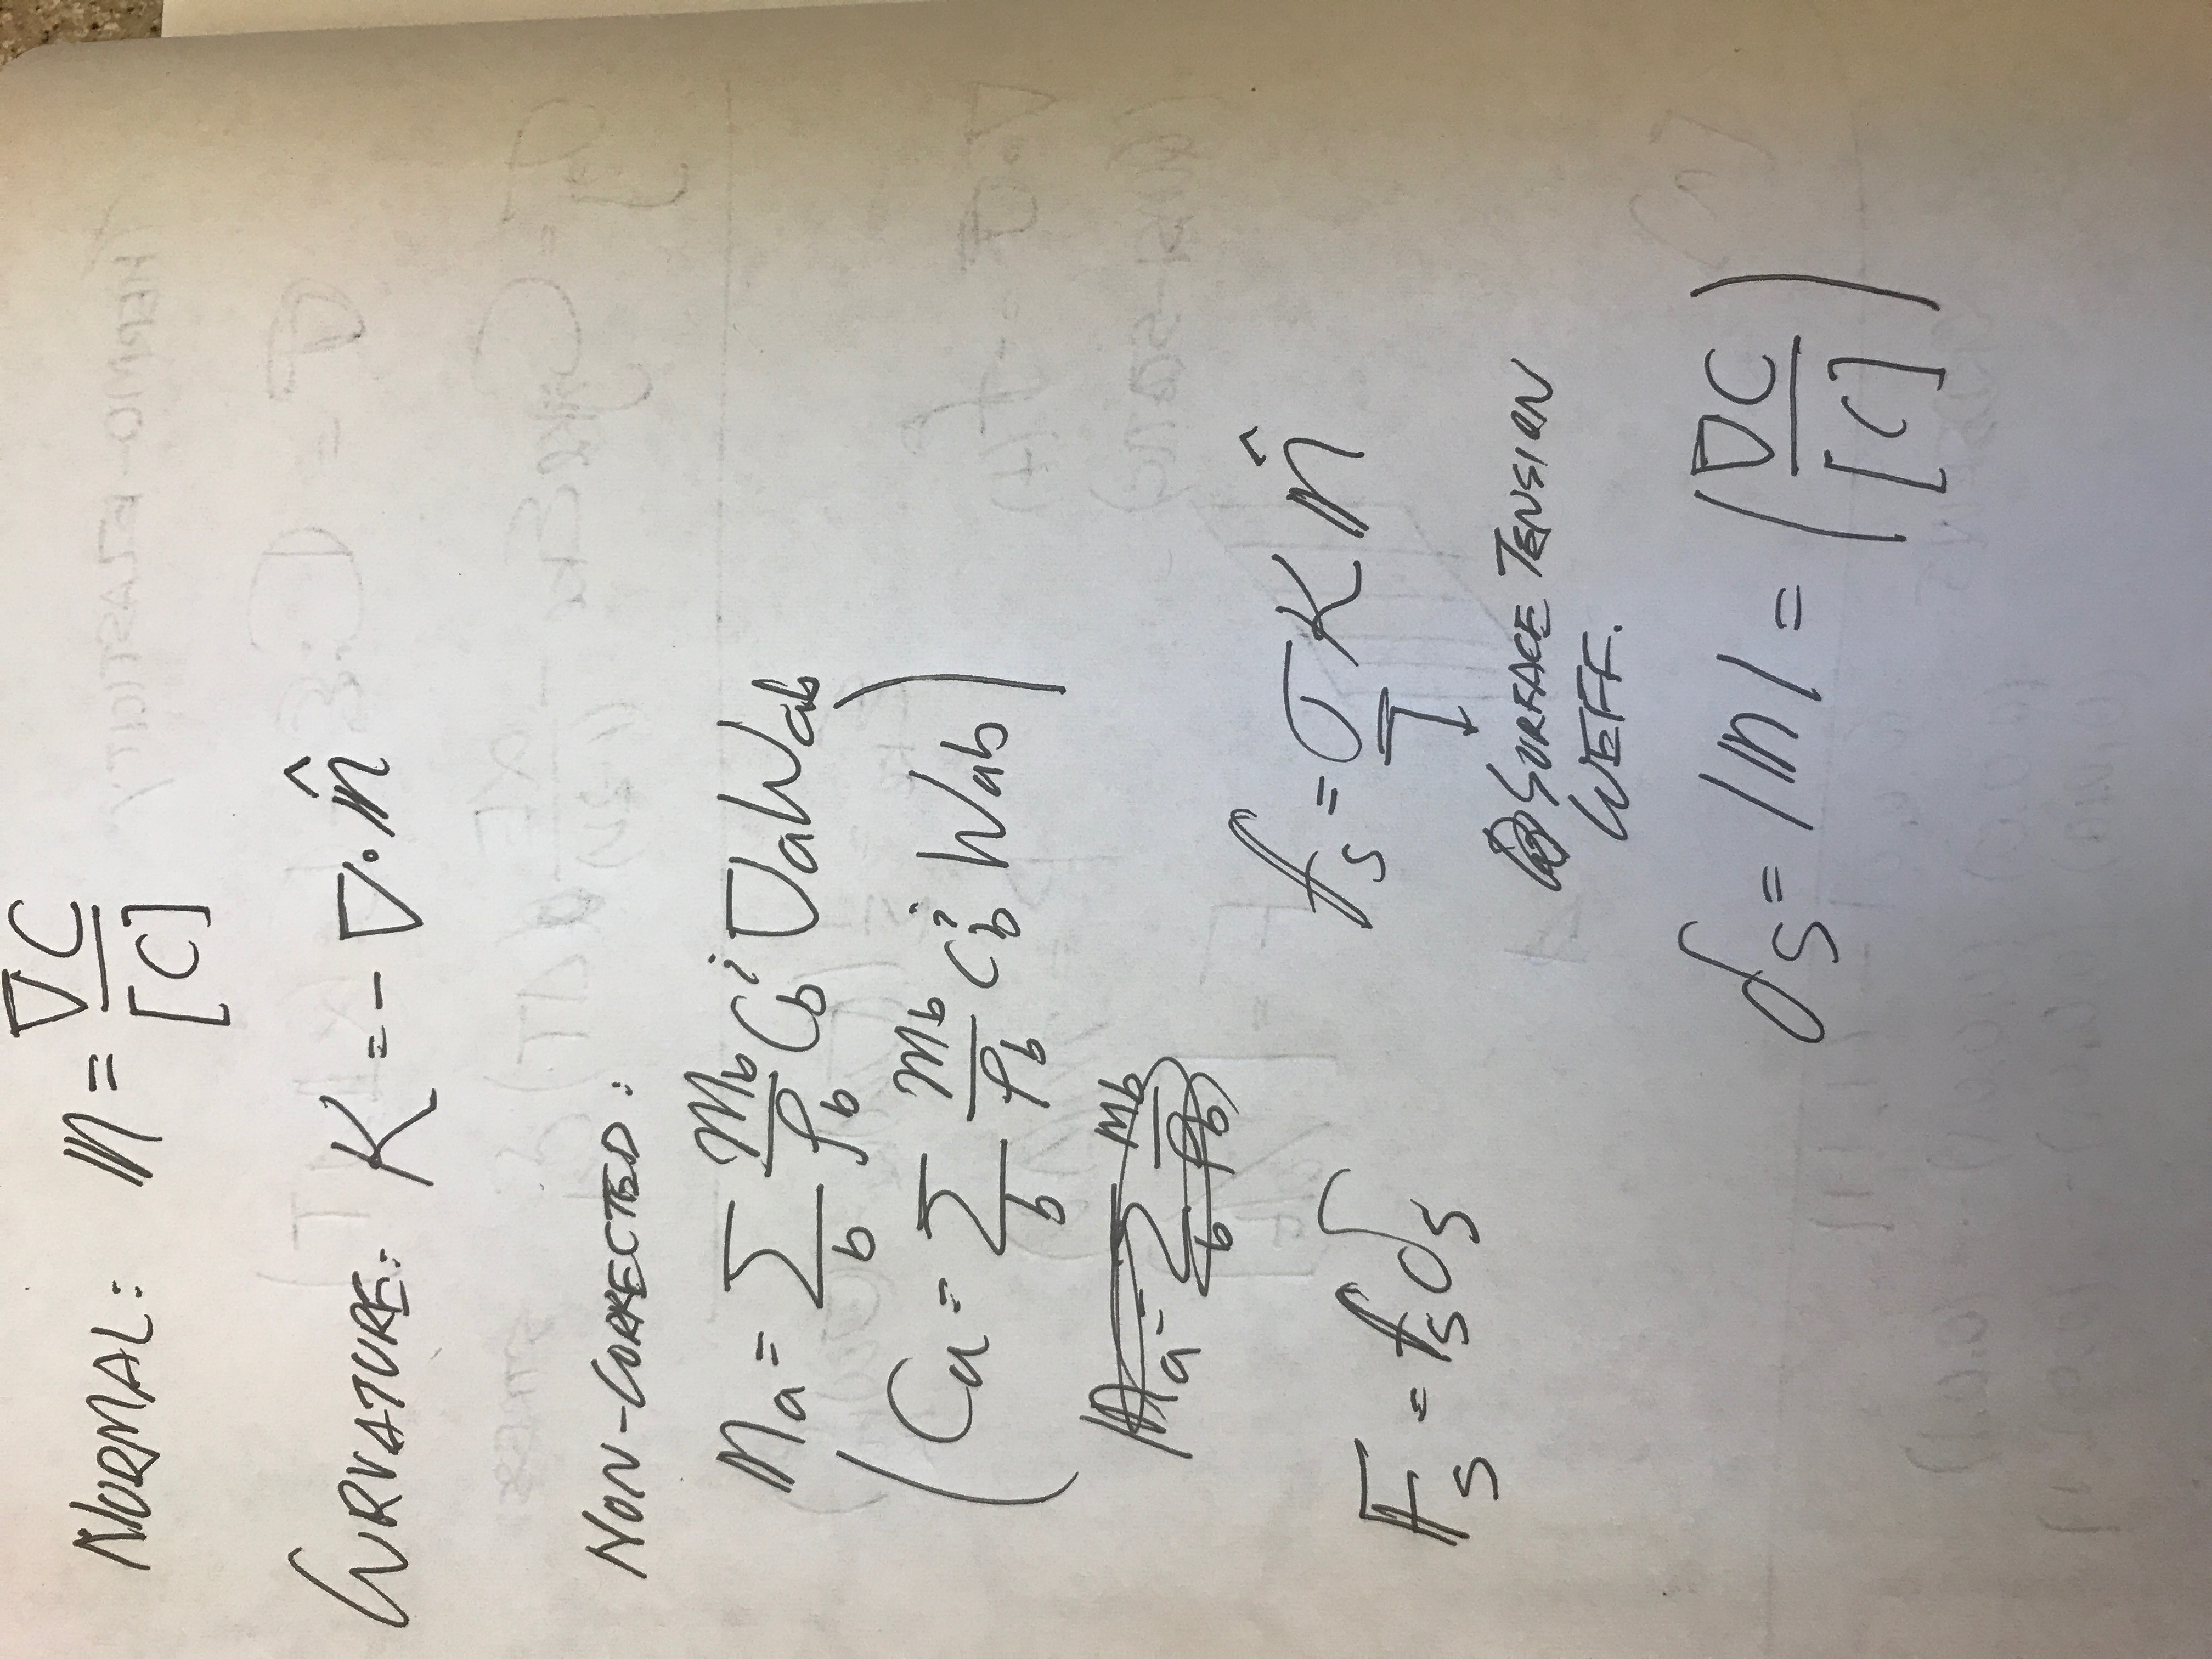 NORMAL: 𝕟 = ∇C / [C]
CURVATURE: K = - ∇·𝕟̂
NON-CORRECTED:
𝕟a = Σb mb/ρb Cb^i ∇aWab
(Ca = Σb mb/ρb Cb^i Wab)
𝕟a = Σb mb/ρb
fs = σ K 𝕟̂
Fs = fs δs
SURFACE TENSION
WEFF.
δs = |𝕟| = |∇C / [C]|